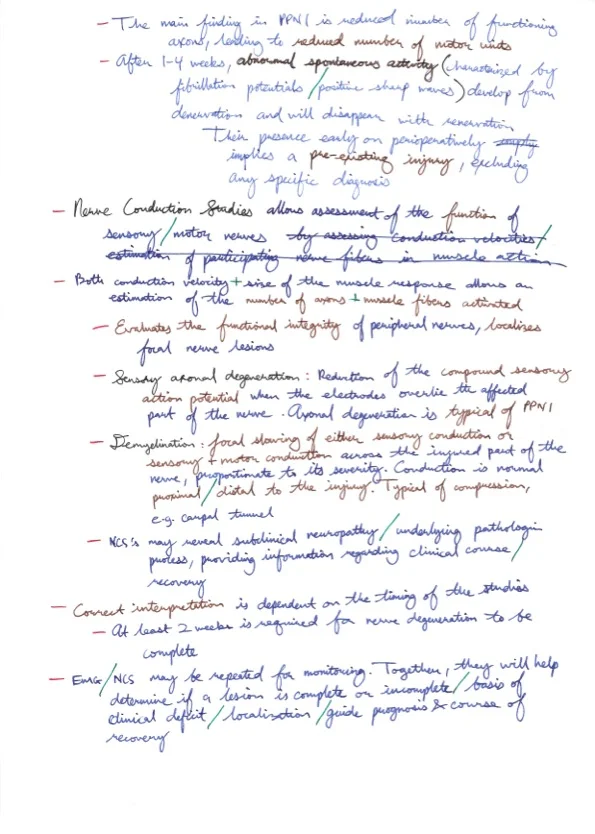 – The main finding in PPNI is reduced number of functioning
axons, leading to reduced number of motor units
– After 1-4 weeks, abnormal spontaneous activity (characterized by
fibrillation potentials/positive sharp waves) develop from
denervation and will disappear with renervation
Their presence early on perioperatively simply
implies a pre-existing injury, excluding
any specific diagnosis
– Nerve Conduction Studies allows assessment of the function of
sensory/motor nerves by assessing conduction velocities/
estimation of participating nerve fibers in muscle action
– Both conduction velocity + size of the muscle response allows an
estimation of the number of axons + muscle fibers activated
– Evaluates the functional integrity of peripheral nerves, localizes
focal nerve lesions
– Sensory axonal degeneration: Reduction of the compound sensory
action potential when the electrodes overlie the affected
part of the nerve. Axonal degeneration is typical of PPNI
– Demyelination: focal slowing of either sensory conduction or
sensory + motor conduction across the injured part of the
nerve, proportionate to its severity. Conduction is normal
proximal/distal to the injury. Typical of compression,
e.g. carpal tunnel
– NCS's may reveal subclinical neuropathy/underlying pathologic
process, providing information regarding clinical course/
recovery
– Correct interpretation is dependent on the timing of the studies
– At least 2 weeks is required for nerve degeneration to be
complete
– EMG/NCS may be repeated for monitoring. Together, they will help
determine if a lesion is complete or incomplete/basis of
clinical deficit/localization/guide prognosis & course of
recovery